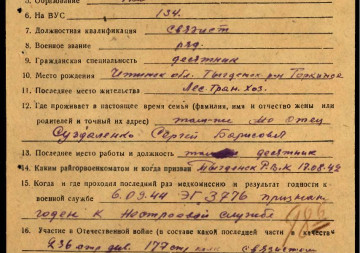 5. Образование
6. На ВУС 134.
7. Должностная квалификация связист
8. Военное звание ряд.
9. Гражданская специальность десятник
10. Место рождения обл.
11. Последнее место жительства Лес Тран. Хоз.
12. Где проживает в настоящее время семья (фамилия, имя и отчество жены или
родителей и точный их адрес) отец
Суздаленко Сергей Борисов
13. Последнее место работы и должность десятник
14. Каким райгорвоенкоматом и когда призван РВК 17.08.42
15. Когда и где проходил последний раз медкомиссию и результат годности к
военной службе 6.09.44 ЭГ 3776 признан
годен к нестроевой службе
16. Участие в Отечественной войне (в составе какой последней части и в качестве
236 стр. див. 177 стр. полк связистом